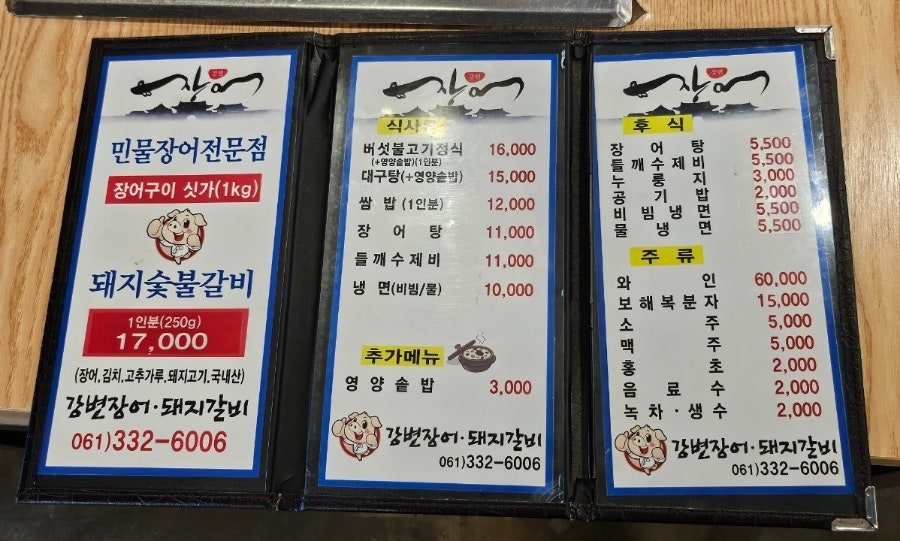 강변
장어
민물장어전문점
장어구이 싯가(1kg)
돼지숯불갈비
1인분(250g)
17,000
(장어,김치,고추가루,돼지고기,국내산)
강변장어·돼지갈비
061)332-6006
강변
장어
식사
버섯불고기정식 16,000
(+영양솥밥)(1인분)
대구탕(+영양솥밥) 15,000
쌈 밥 (1인분) 12,000
장 어 탕 11,000
들깨수제비 11,000
냉 면(비빔/물) 10,000
추가메뉴
영양솥밥 3,000
강변장어·돼지갈비
061)332-6006
강변
장어
후 식
장어탕 5,500
들깨수제비 5,500
누룽지 3,000
공기밥 2,000
비빔냉면 5,500
물냉면 5,500
주 류
와인 60,000
보해복분자 15,000
소주 5,000
맥주 5,000
홍초 2,000
음료수 2,000
녹차·생수 2,000
강변장어·돼지갈비
061)332-6006